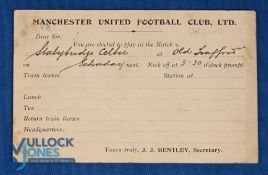 MANCHESTER UNITED FOOTBALL CLUB, LTD.
Dear Sir,
You are elected to play in the Match v.
Stalybridge Celtic at Old Trafford
on Saturday next. Kick off at 3-30 o'clock prompt.
Train leaves Station at
Lunch
Tea
Return train leaves
Headquarters:
Yours truly, J. J. BENTLEY, Secretary.
MULLOCK
JONES